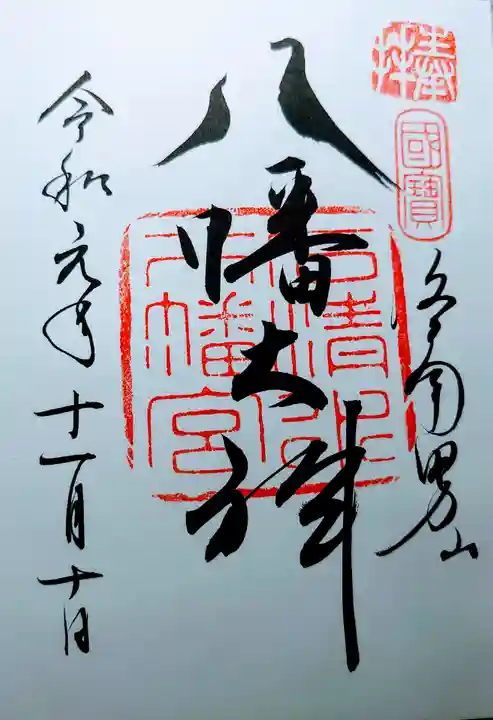 奉拜
國寶
男山
八幡大神
石清水
八幡宮
令和元年十一月十日